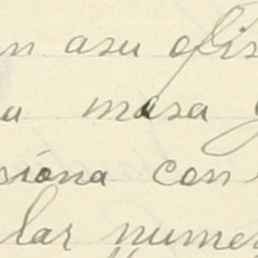 n asu ofis
a mesa
siona con
lar numer